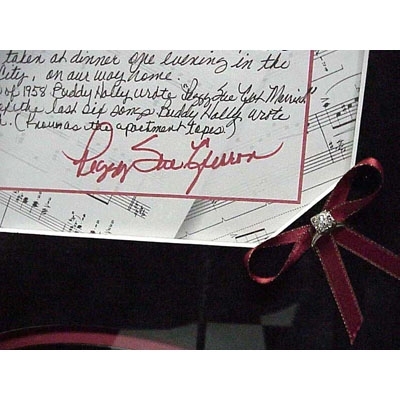 taken at dinner one evening in the
City, on our way home.
of 1958 Buddy Holly wrote "Peggy Sue Got Married"
the last six songs Buddy Holly wrote
(Known as the apartment tapes!)
Peggy Sue Gerron